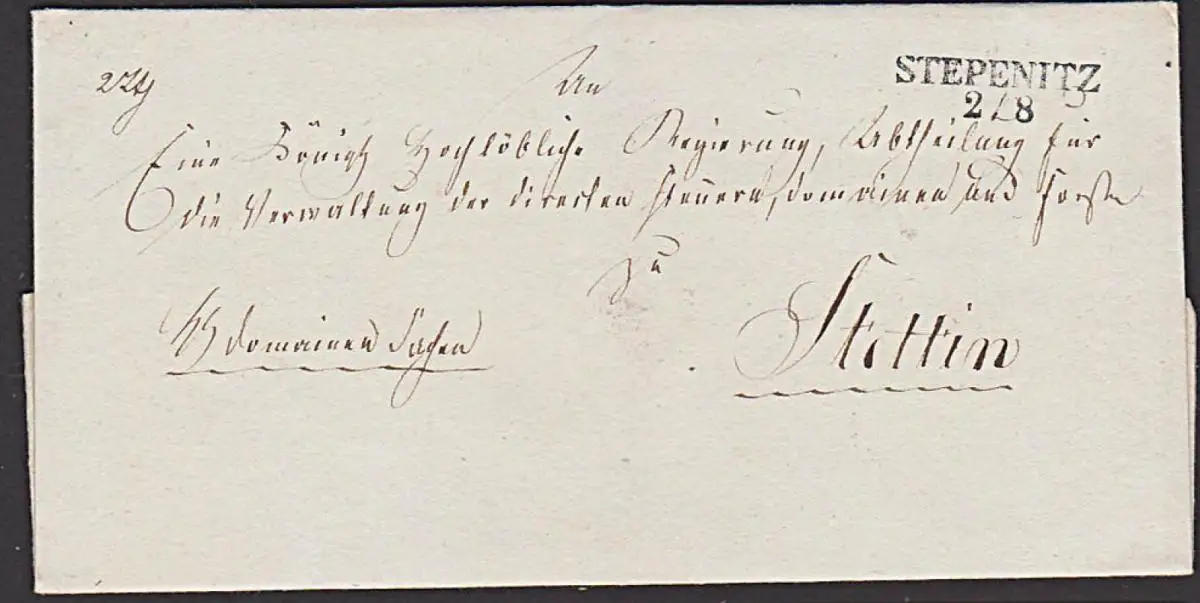 An
STEPENITZ
2 / 8
Eine Königl Hochlöbliche Regierung, Abtheilung für
die Verwaltung der directen Steuern, Domainen und Forste
zu
Stettin
Domainen Sachen